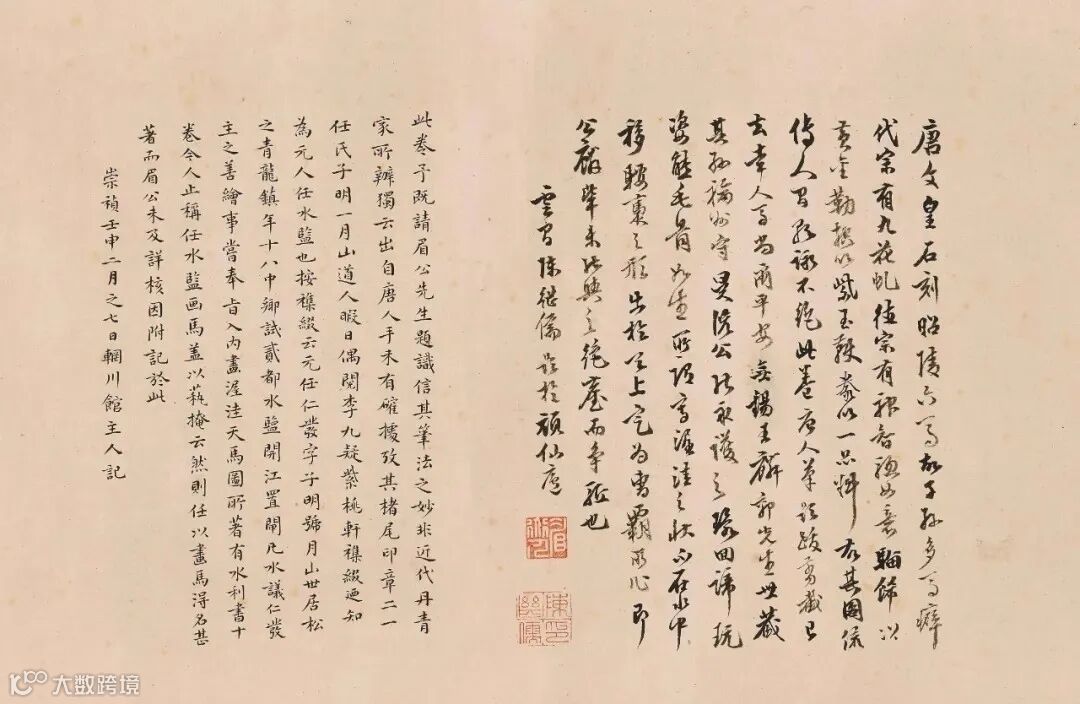 唐文皇石刻昭陵六馬故子孫多馬癖
代宗有九花虬德宗有神智驄如意騮飾以
黃金勒控以紫玉鞭豢以一品料 故其圖流
傳人間歌詠不絕此卷唐人筆 題跋剪裁已
去幸人馬尚爾平安無錫王麟郭先生世藏
其孫福州守 公能永護之 玩
姿態毛骨如生所謂 渥洼之狀 在
移騕褭之形出於天上定為曹霸所作即
公麟輩未能與之絕塵而爭極也
雲間陳繼儒題於頑仙廬
此卷予既請眉公先生題識信其筆法之妙非近代丹青
家所辦獨云出自唐人手未有確據攷其楮尾印章二一
任氏子明一月山道人暇日偶閱李九疑紫桃軒襍綴迺知
為元人任水監也按襍綴云元任仁發字子明號月山世居松
之青龍鎮年十八中鄉試貳都水監開江置閘凡水議仁發
主之善繪事當奉旨入內畫渥洼天馬圖所著有水利書十
卷今人止稱任水監画馬蓋以藝掩云然則任以畫馬得名甚
著而眉公未及詳核因附記於此
崇禎壬申二月之七日輞川館主人記
眉公
陳印繼儒
大数跨境